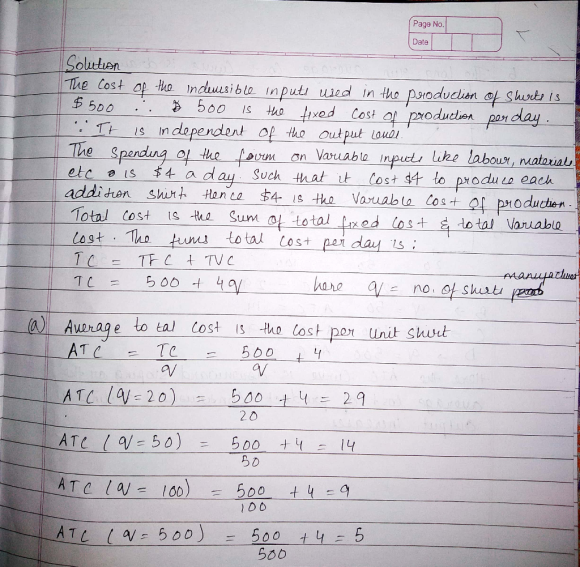 Page No.
Date
Solution
The Cost of the indivisible inputs used in the production of Shirts is
$ 500 ∴ $ 500 is the fixed Cost of production per day.
∵ It is independent of the output level.
The Spending of the firm on Variable inputs like labour, materials
etc is $4 a day such that it cost $4 to produce each
addition shirt. Hence $4 is the Variable Cost of production.
Total Cost is the Sum of total fixed Cost & total Variable
Cost. The firms total Cost per day is :
TC = TFC + TVC
TC = 500 + 4q here q = no. of shirts manufactured
(a) Average total Cost is the Cost per unit shirt
ATC = TC/q = 500/q + 4
ATC (q = 20) = 500/20 + 4 = 29
ATC (q = 50) = 500/50 + 4 = 14
ATC (q = 100) = 500/100 + 4 = 9
ATC (q = 500) = 500/500 + 4 = 5